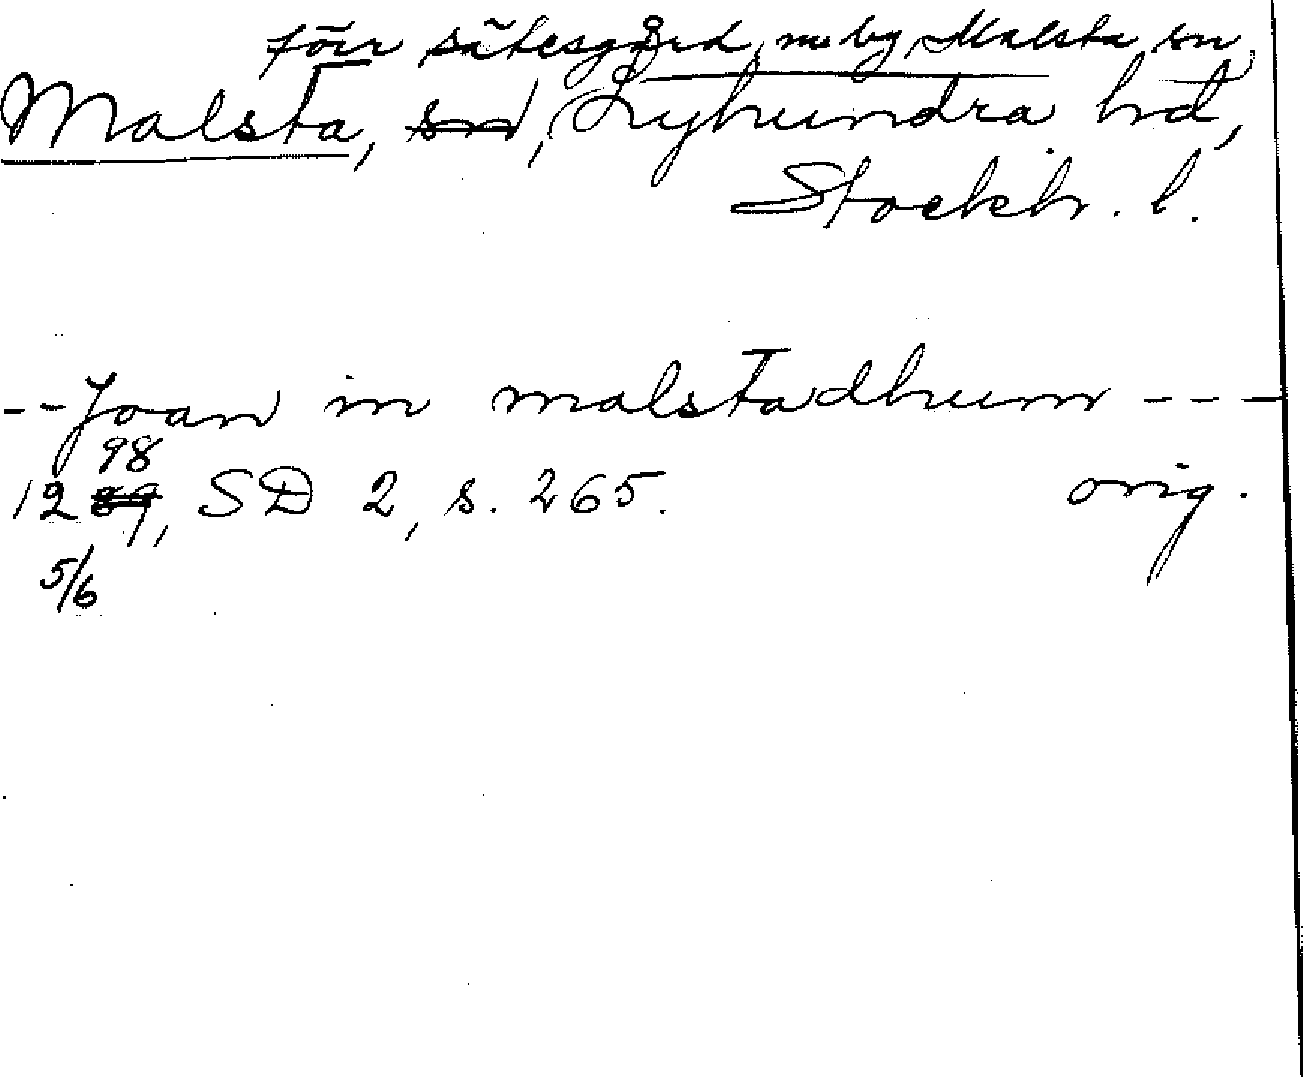 förr sätesgård, nu by, Malsta sn,
Malsta, sn, Lyhundra hd,
Stockh. l.
--Joan in malstadhum ---
98
1289, SD 2, s. 265. orig.
5/6